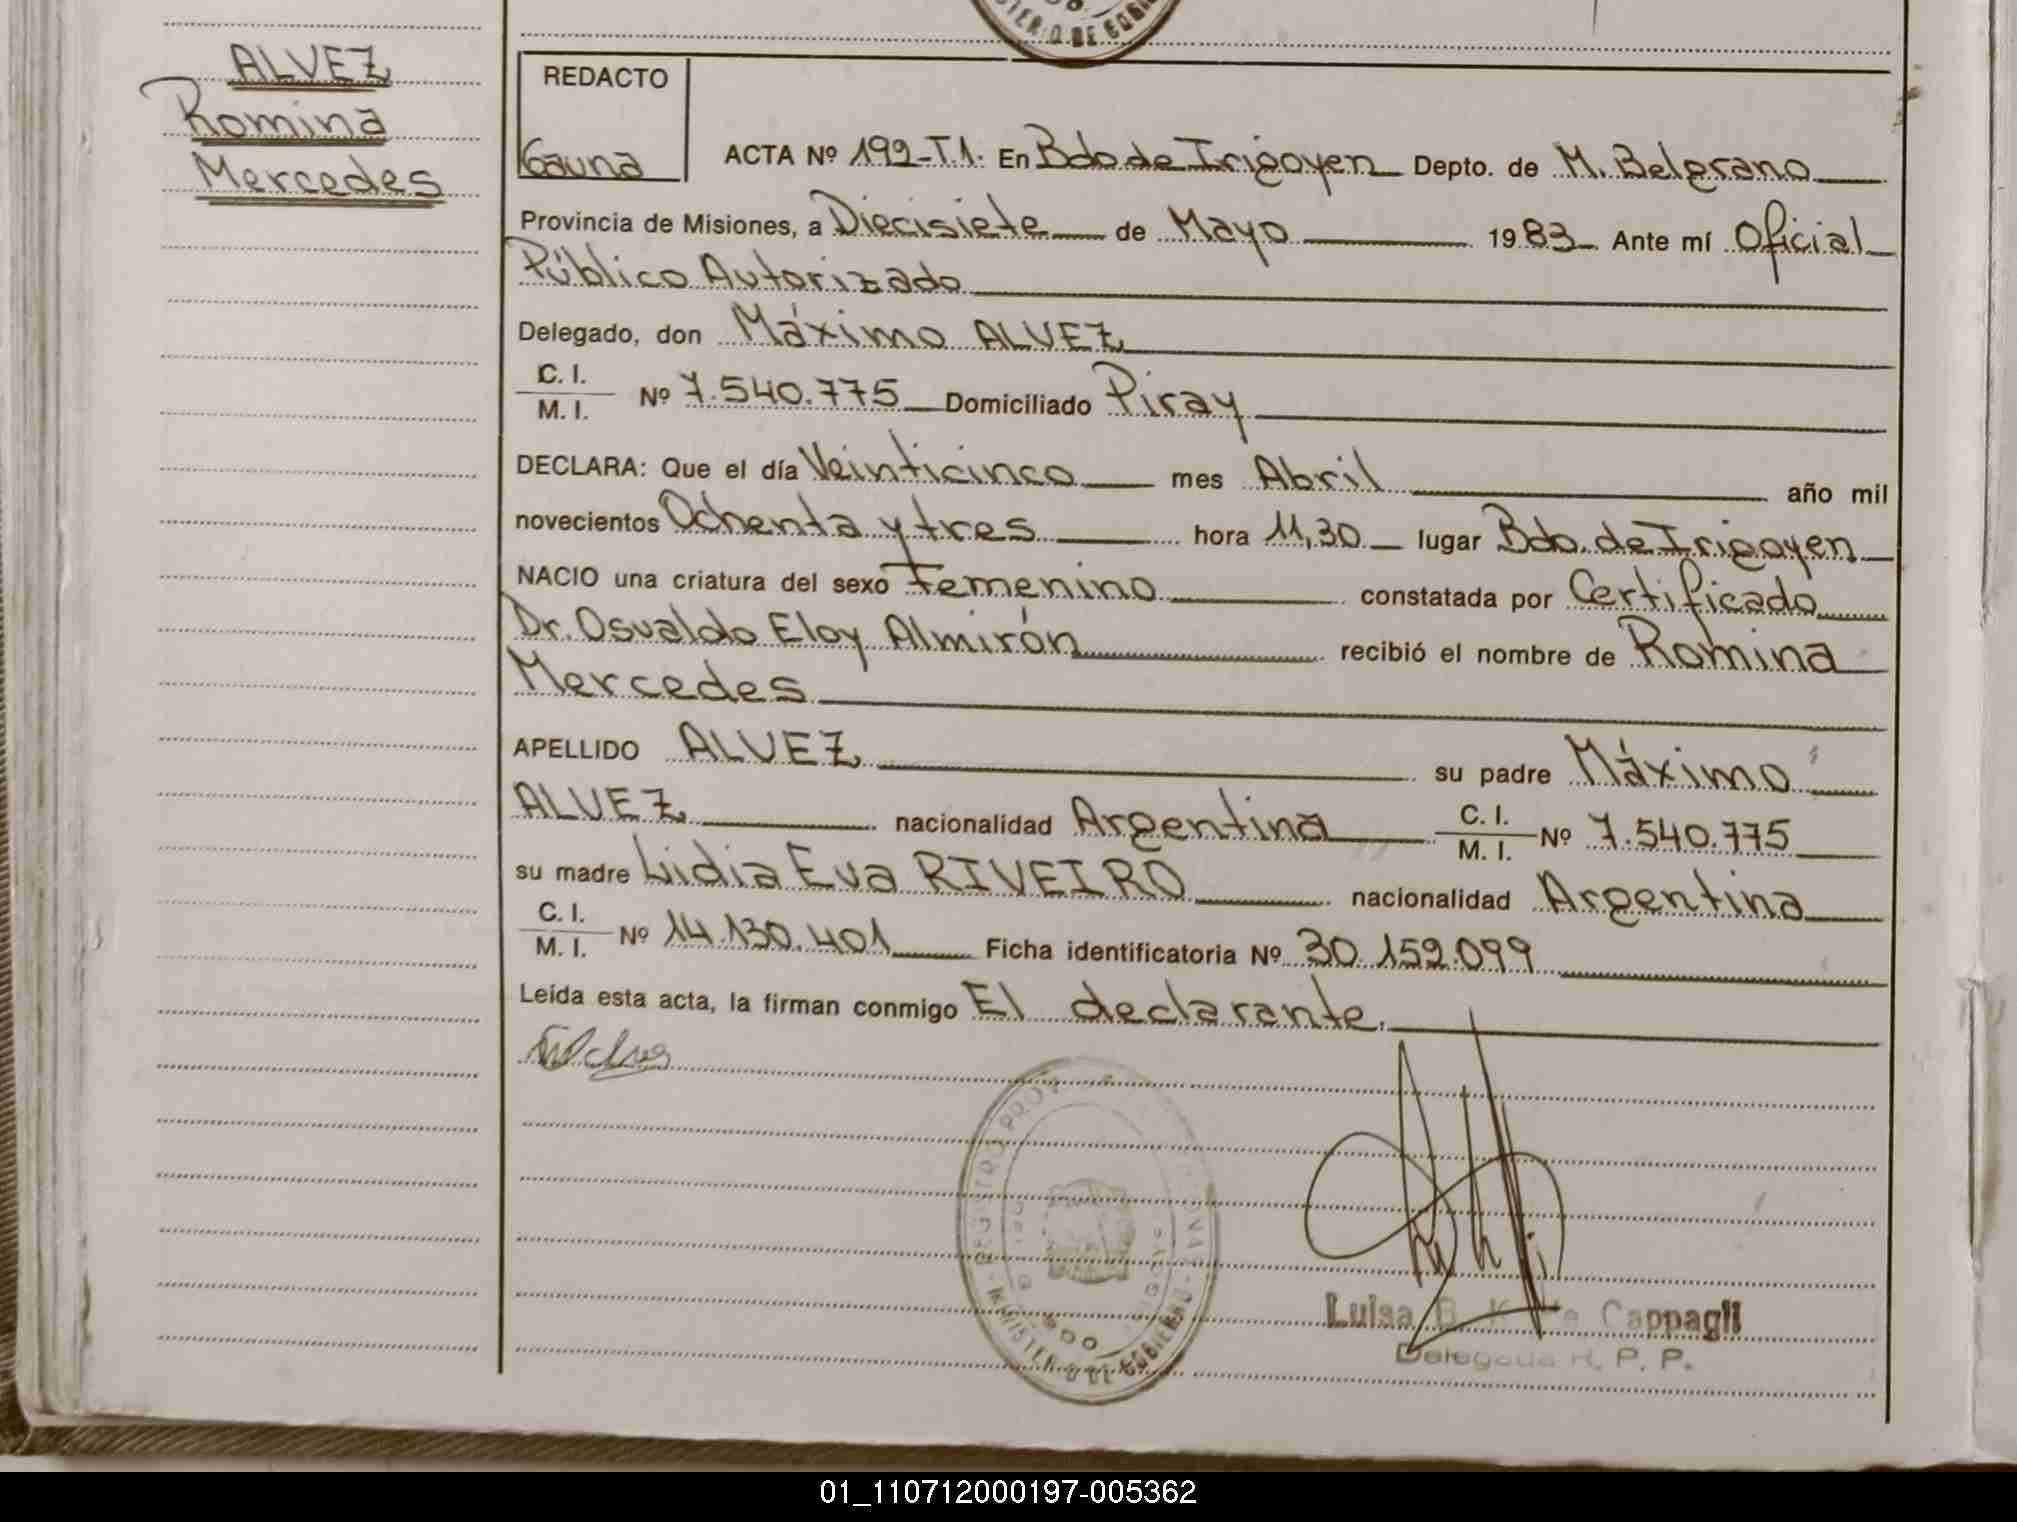 ALVEZ
Romina
Mercedes
REDACTO
Gauna
ACTA Nº 199-T1. En Bdo de Irigoyen Depto. de M. Belgrano
Provincia de Misiones, a Diecisiete de Mayo 1983 Ante mí Oficial
Público Autorizado
Delegado, don Máximo ALVEZ
C. I.
M. I. Nº 7.540.775 Domiciliado Piray
DECLARA: Que el día Veinticinco mes Abril año mil
novecientos Ochenta y tres hora 11,30 lugar Bdo. de Irigoyen
NACIO una criatura del sexo Femenino constatada por Certificado
Dr. Osvaldo Eloy Almirón recibió el nombre de Romina
Mercedes
APELLIDO ALVEZ su padre Máximo
ALVEZ nacionalidad Argentina C. I. M. I. Nº 7.540.775
su madre Lidia Eva RIVEIRO nacionalidad Argentina
C. I.
M. I. Nº 14.130.401 Ficha identificatoria Nº 30.159.099
Leída esta acta, la firman conmigo El declarante.
REGISTRO PROV
MINISTERIO DE GOBIERNO
Luisa Cappagli
Delegada R. P. P.
01_110712000197-005362